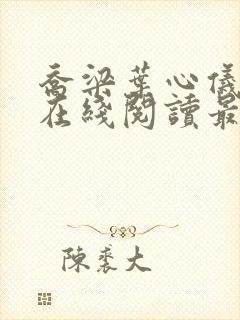 喬梁葉心儀
在綫閱讀最
陳裘大